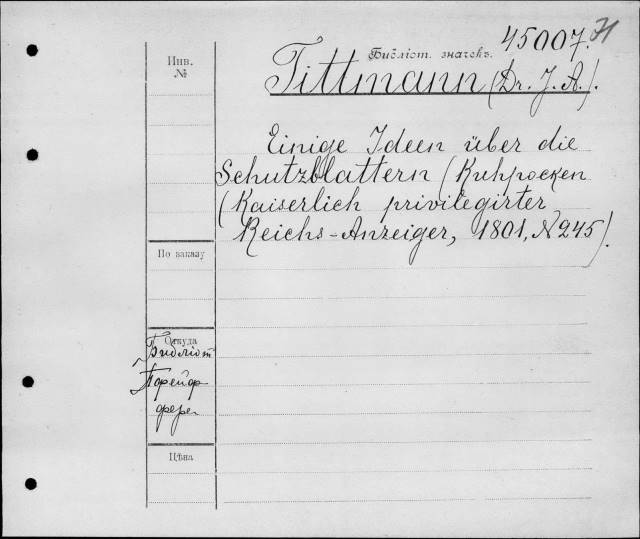 45007.
Инв. №
Библіот. значекъ.
Tittmann (Dr. J. A.).
Einige Ideen über die
Schutzblattern (Kuhpocken
(Kaiserlich privilegirter
Reichs-Anzeiger, 1801, N 245).
По заказу
Откуда
Библіот
Пфейф
фера
Цѣна